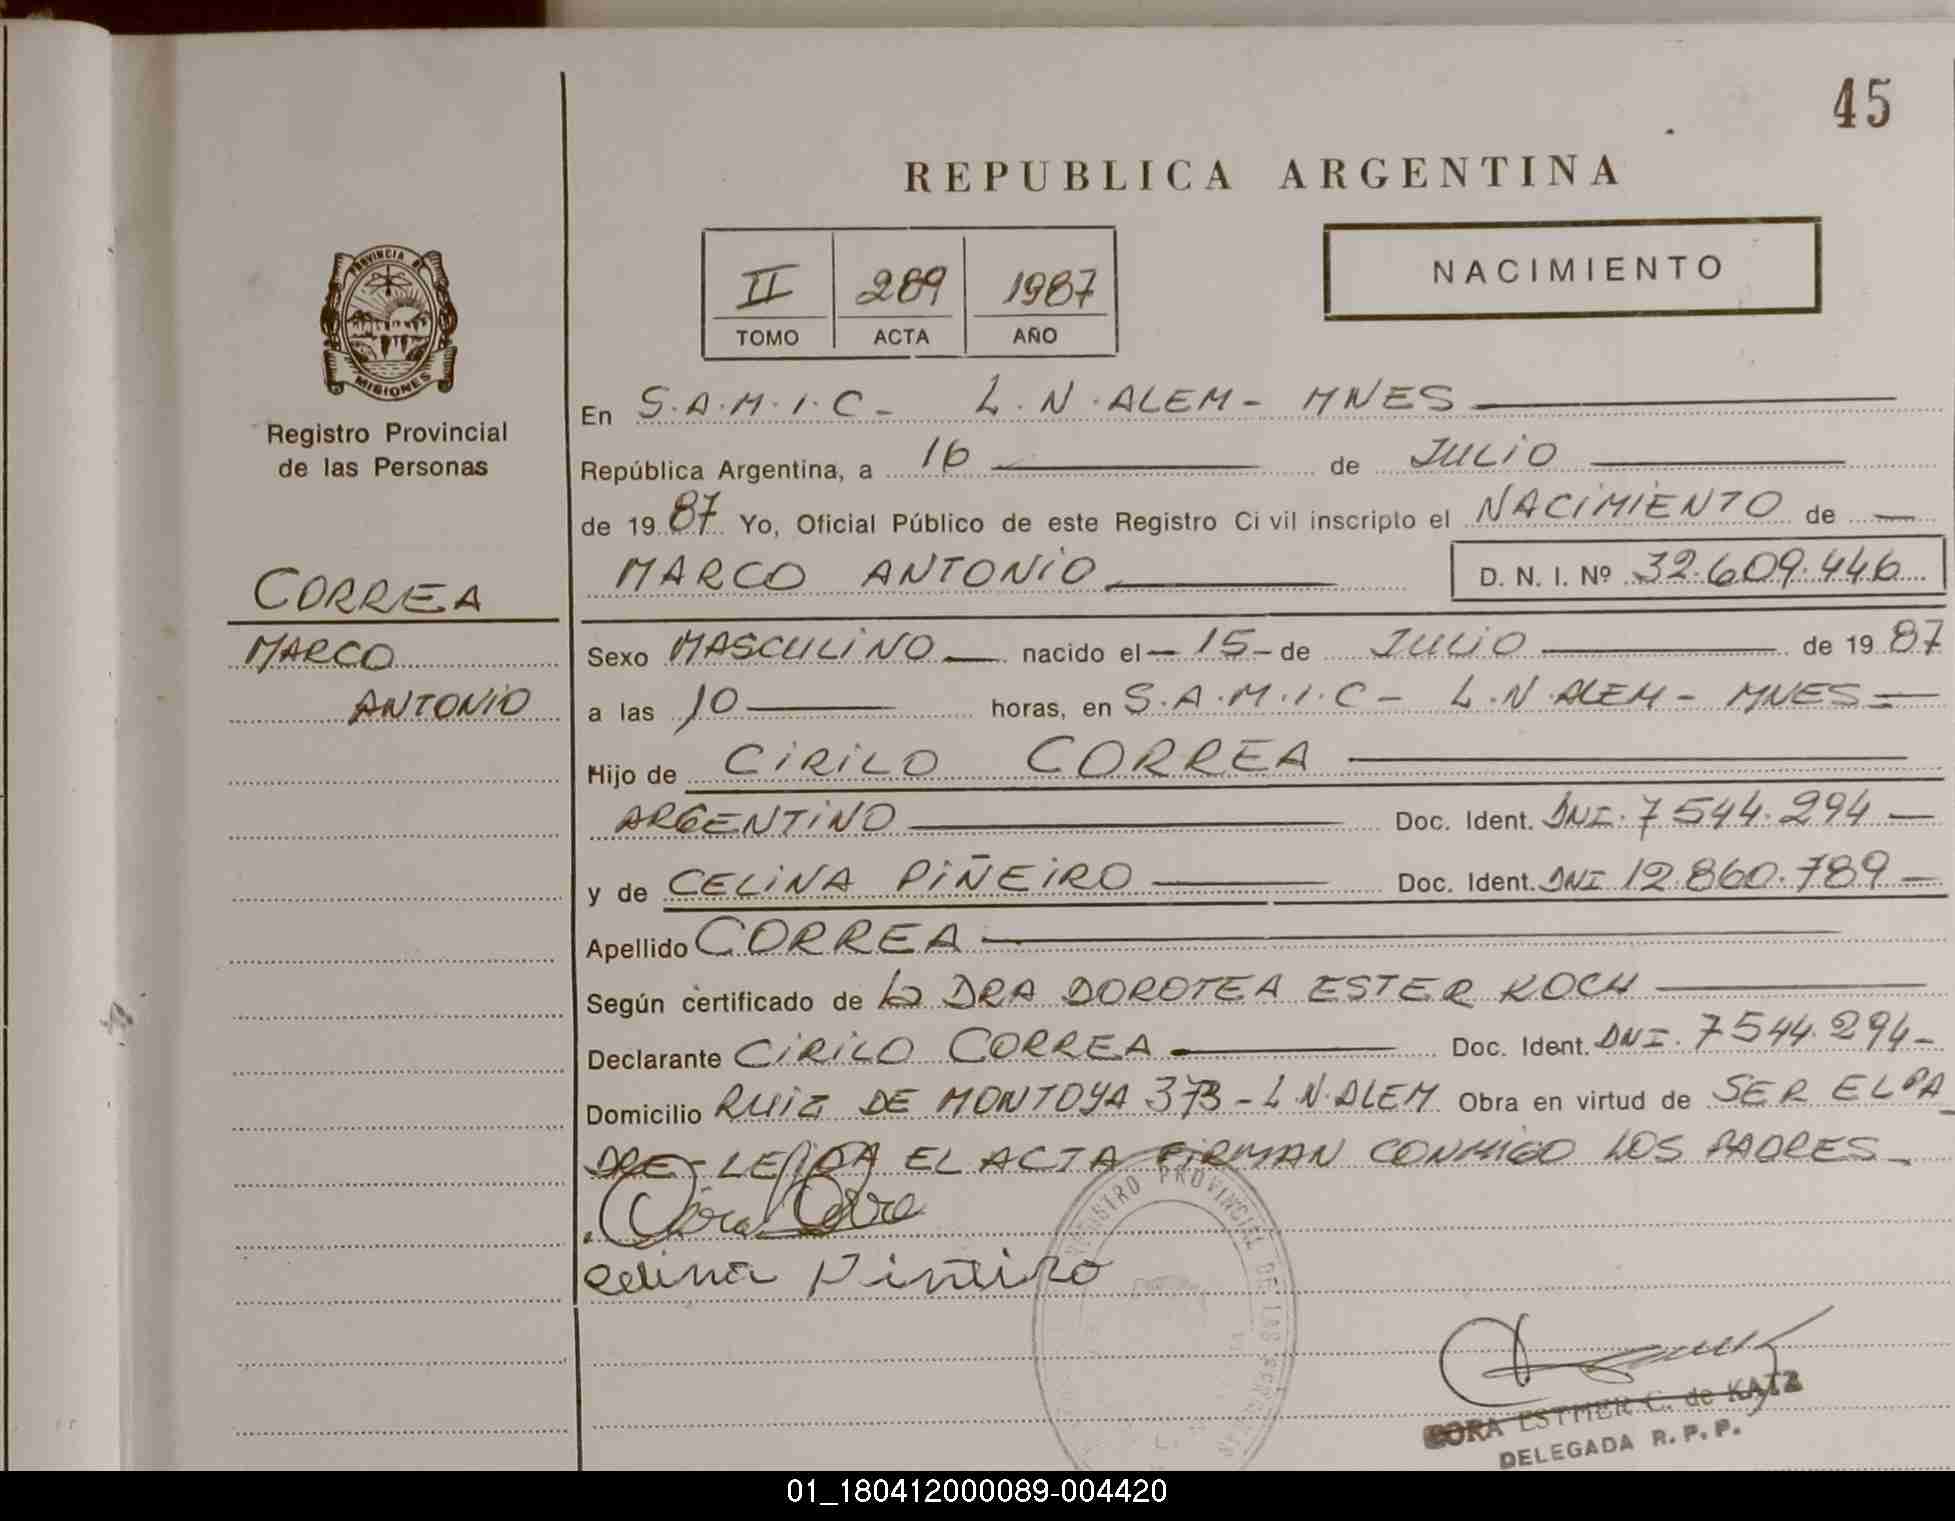 45
REPUBLICA ARGENTINA
II 289 1987
TOMO ACTA AÑO
NACIMIENTO
PROVINCIA DE
MISIONES
Registro Provincial
de las Personas
CORREA
MARCO
ANTONIO
En S.A.M.I.C- L.N.ALEM- MNES
República Argentina, a 16 de JULIO
de 1987 Yo, Oficial Público de este Registro Civil inscripto el NACIMIENTO de
MARCO ANTONIO D. N. I. Nº 32.609.446
Sexo MASCULINO nacido el - 15 - de JULIO de 1987
a las 10 horas, en S.A.M.I.C- L.N.ALEM- MNES=
Hijo de CIRILO CORREA
ARGENTINO Doc. Ident. DNI. 7544.294
y de CELINA PIÑEIRO Doc. Ident. DNI 12.860.789
Apellido CORREA
Según certificado de la DRA DOROTEA ESTER KOCH
Declarante CIRILO CORREA Doc. Ident. DNI. 7544.294-
Domicilio RUIZ DE MONTOYA 373 - L.N.ALEM Obra en virtud de SER EL PA
DRE- LEIDA EL ACTA FIRMAN CONMIGO LOS PADRES-
Celina Piñeiro
REGISTRO PROVINCIAL DE LAS PERSONAS
DORA ESTHER C. de KATZ
DELEGADA R. P. P.
01_180412000089-004420